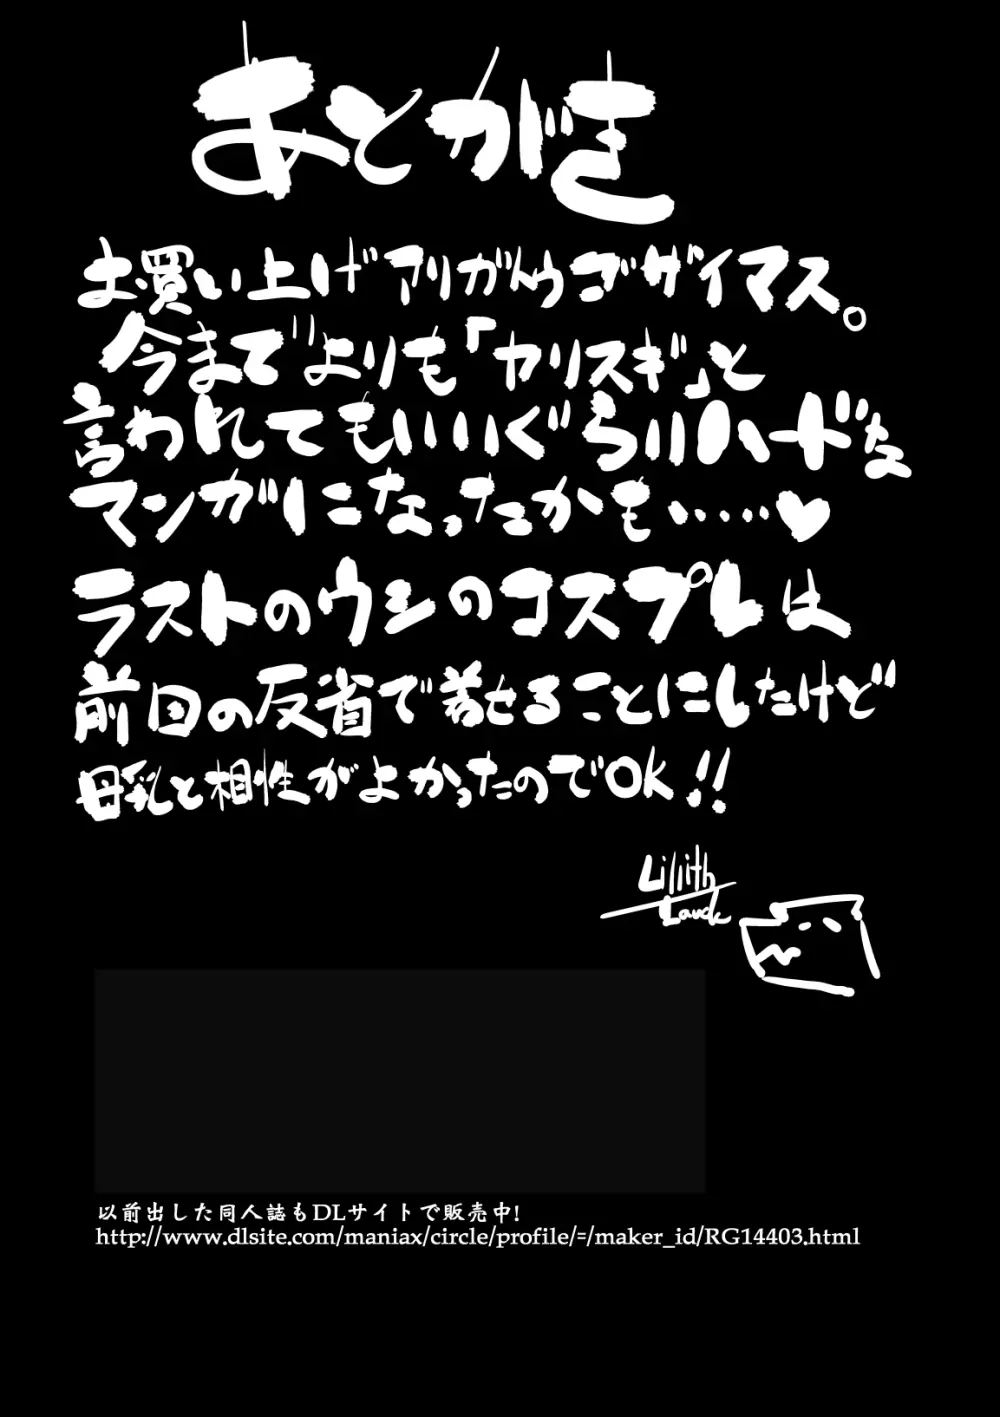 あとがき
お買い上げアリガトウゴザイマス。
今までよりも「ヤリスギ」と
言われてもいいぐらいハードな
マンガになったかも……♥
ラストのウシのコスプレは
前回の反省で着せることにしたけど
母乳と相性がよかったのでOK!!
Lilith
Lauda
以前出した同人誌もDLサイトで販売中!
http://www.dlsite.com/maniax/circle/profile/=/maker_id/RG14403.html